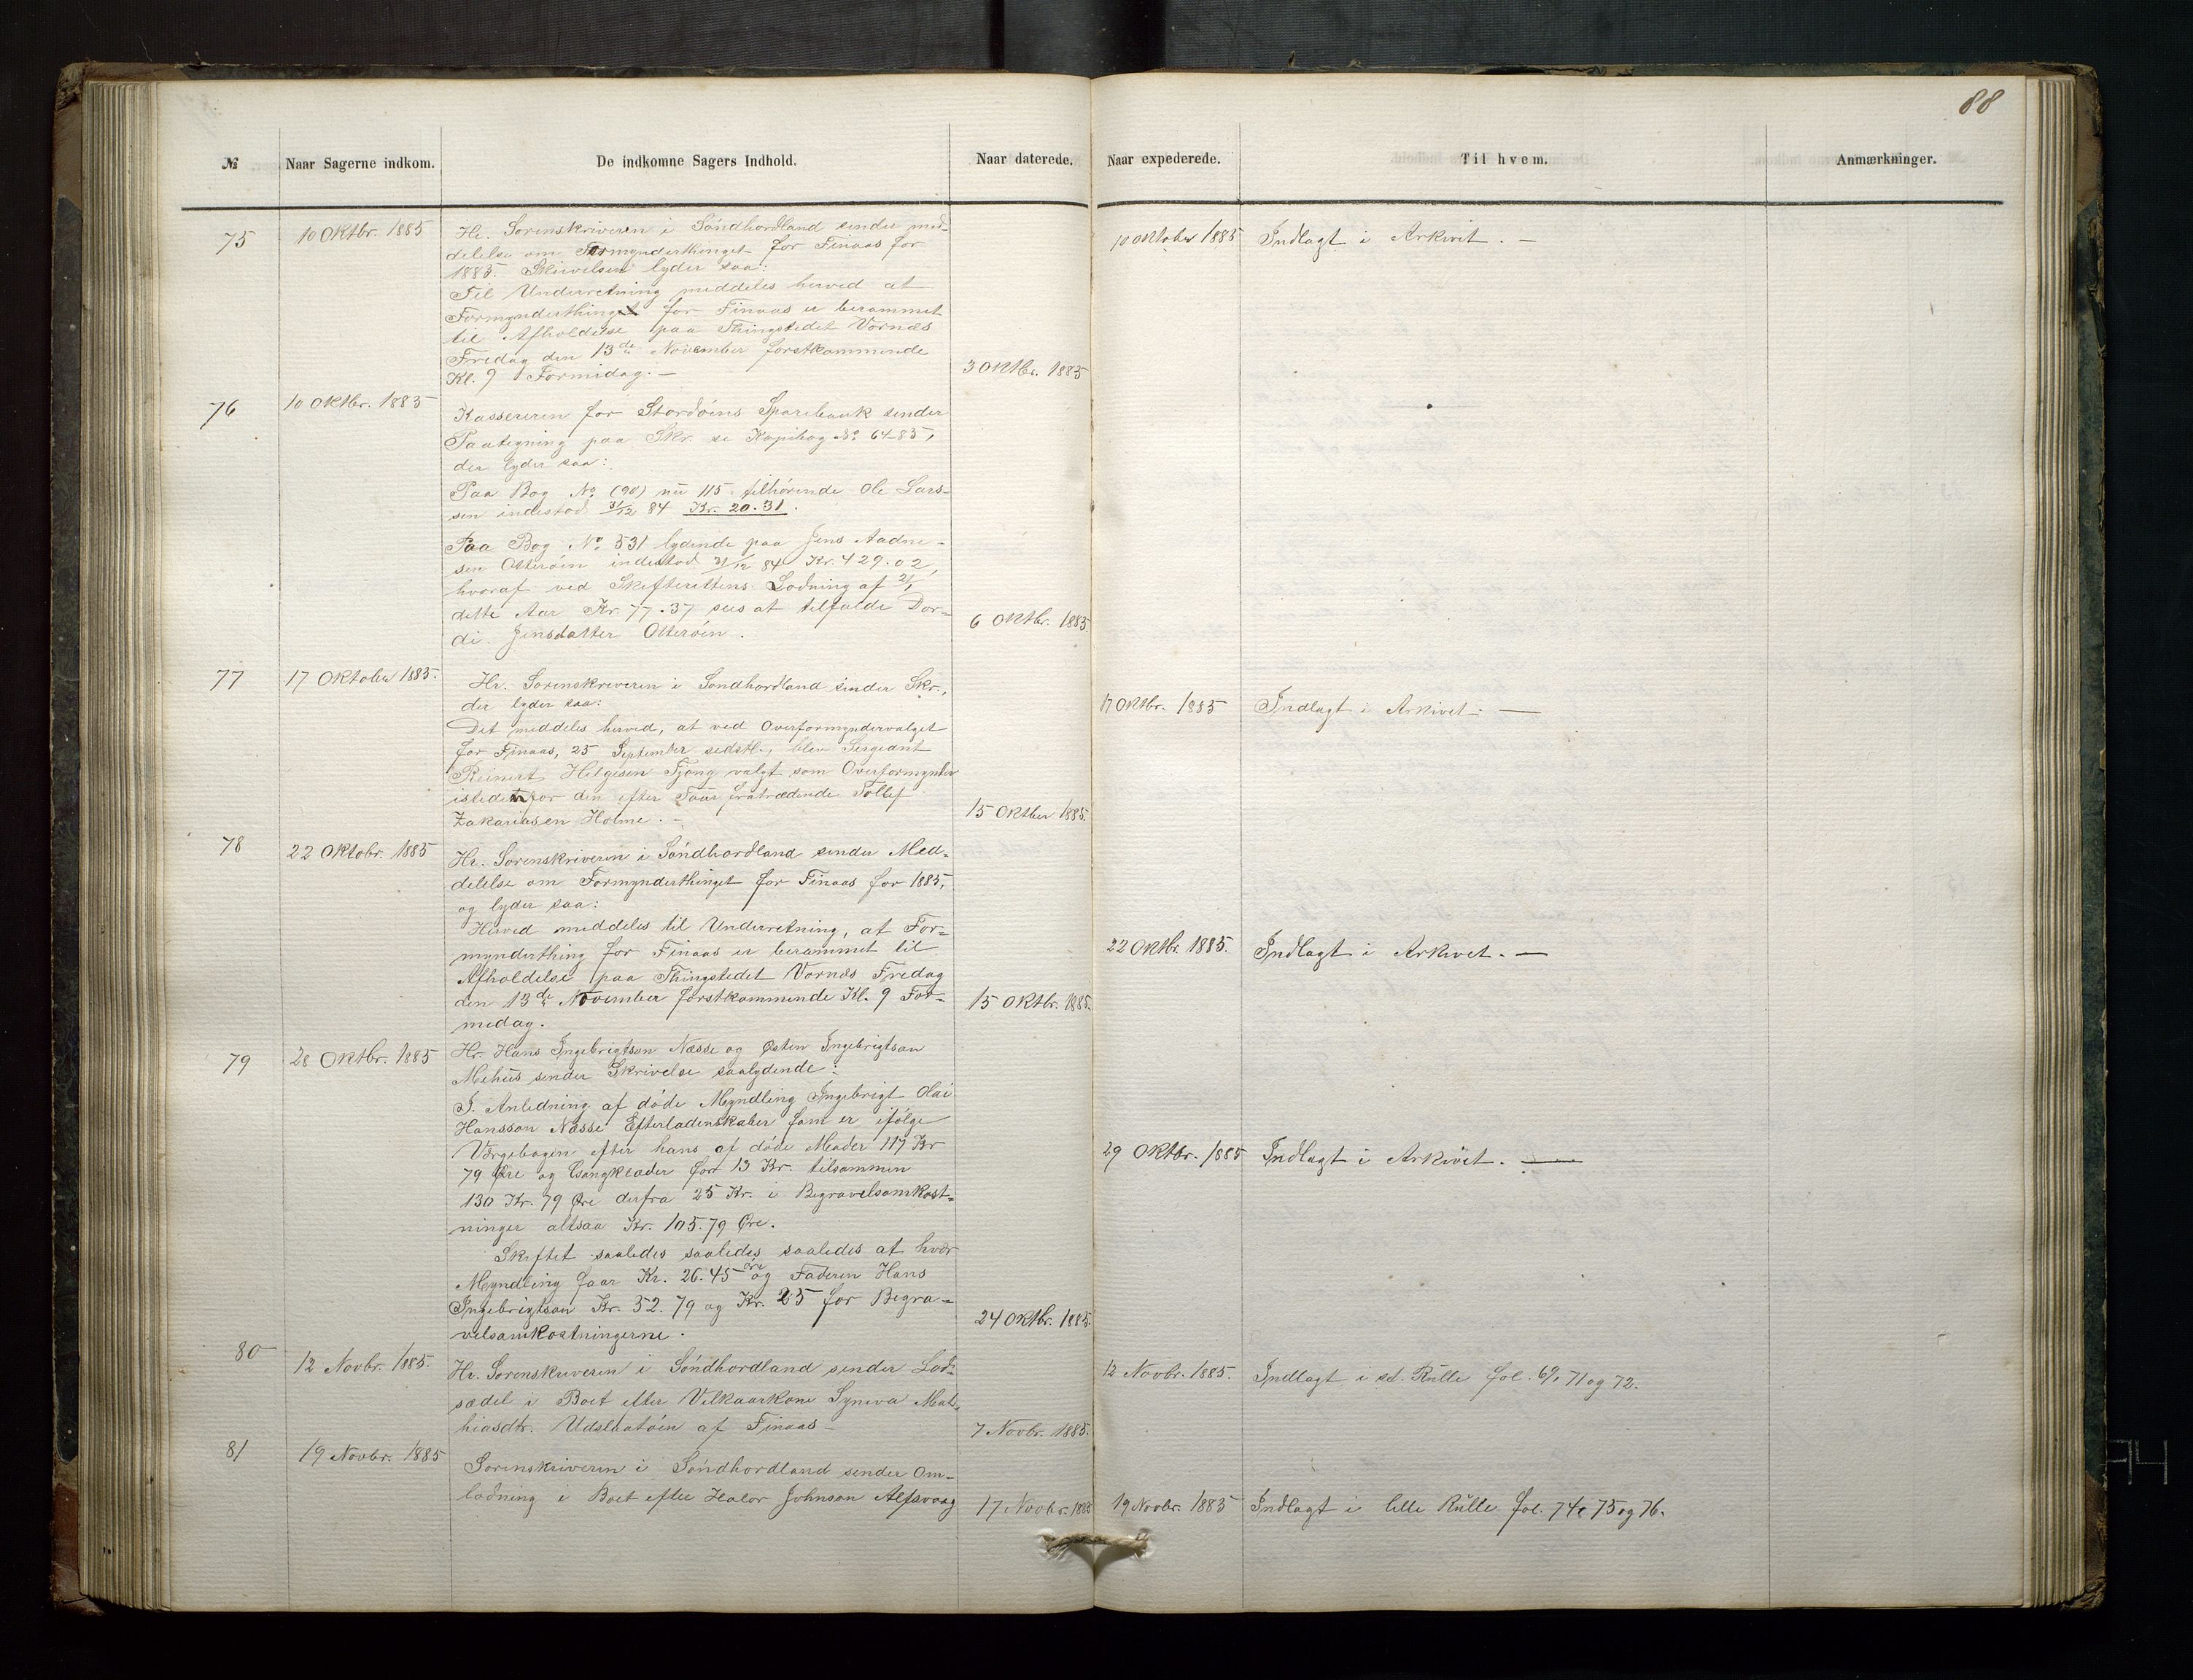 88
№ Naar Sagerne indkom. De indkomne Sagers Indhold. Naar daterede. Naar expederede. Til hvem. Anmærkninger.
75 10 Oktbr. 1885 Hr. Sorenskriveren i Söndhordland sender med-
delelse om Formynderthinget for Finaas for
1885. Skrivelsen lyder saa:
Til Underretning meddeles herved at
Formynderthinget for Finaas er berammet
til Afholdelse paa Thingstedet Vornæs
Fredag den 13de November forstkommende
Kl. 9 Formidag. — 3 Oktbr. 1885
10 Oktober 1885 Indlagt i Arkivet. —
76 10 Oktbr. 1885 Kassereren for Stordöens Sparebank sender
Paategning paa Skr. se Kopibog No 64-85,
der lyder saa:
Paa Bog No (90) nu 115 tilhörende Ole Lars-
sen indestod 31/12 84 Kr. 20.31.
Paa Bog No 531 lydende paa Jens Aadne-
sen Otteröen indestod 31/12 84 Kr. 429.02,
hvoraf ved Skifterettens Lodning af
dette Aar Kr. 77.37 sees at tilfalde Dor-
di Jensdatter Otteröen. 6 Oktbr. 1885.
77 17 Oktober 1885. Hr. Sorenskriveren i Sondhordland sender Skr.,
der lyder saa:
Det meddeles herved, at ved Overformyndervalget
for Finaas, 25 September sidstl., blev Sergeant
Reinert Helgesen Tjong valgt som Overformynder
istedenfor den efter Tour fratrædende Tollef
Zakariasen Holme. — 15 Oktber 1885.
17 Oktbr. 1885 Indlagt i Arkivet. —
78 22 Oktobr. 1885 Hr. Sorenskriveren i Söndhordland sender Med-
delelse om Formynderthinget for Finaas for 1885,
og lyder saa:
Herved meddeles til Underretning, at For-
mynderthing for Finaas er berammet til
Afholdelse paa Thingstedet Vornæs Fredag
den 13de November forstkommende Kl. 9 For-
medag. 15 Oktbr. 1885.
22 Oktbr. 1885. Indlagt i Arkivet. —
79 28 Oktbr. 1885 Hr. Hans Ingebrigtson Næsse og Østen Ingebrigtson
Mehus sender Skrivelse saalydende:
I Anledning af döde Myndling Ingebrigt Olai
Hansson Næsse Efterladenskaber som er ifölge
Vergebogen efter hans af döde Moder 117 Kr
79 Øre og Gangklæder for 13 Kr. tilsammen
130 Kr. 79 Øre derfra 25 Kr. i Begravelsomkost-
ninger altsaa Kr. 105.79 Øre.
Skiftet saaledes saaledes saaledes at hver
Myndling faar Kr. 26.45 Øre og Faderen Hans
Ingebrigtson Kr. 52.79 og Kr. 25 for Begra-
velsomkostningerne. 24 Oktbr. 1885.
29 Oktbr. 1885 Indlagt i Arkivet. —
80 12 Novbr. 1885. Hr. Sorenskriveren i Söndhordland sender Lod-
sædel i Boet efter Vilkaarkone Synneva Mat-
hiasdtr. Udslaatöen af Finaas — 7 Novbr. 1885.
12 Novbr. 1885. Indlagt i sd. Rulle fol. 69, 71 og 72.
81 19 Novbr. 1885 Sorenskriveren i Söndhordland sender Om-
lodning i Boet efter Halvor Johnson Alfsvaag 17 Novbr. 1885
19 Novbr. 1885 Indlagt i lille Rulle fol. 74, 75 og 76.